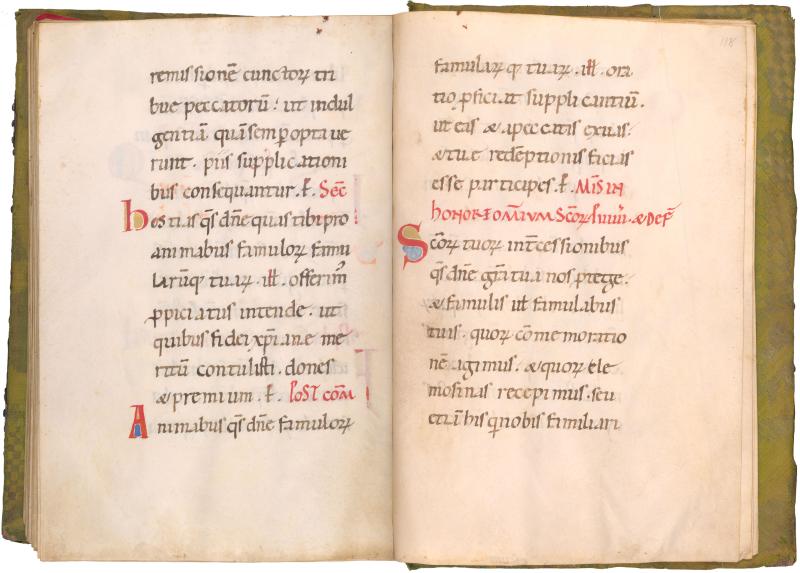 remissionē cunctoꝝ tri
bue peccatorū ut indul
gentiā quā semp optaue
runt. piis supplicationi
bus consequantur. ꝉ. Sec̄
hostias qs̄ dn̄e quas tibi pro
animabus famuloꝝ famu
larūq tuaꝝ. iłł. offerim᷒
ꝓpiciatus intende. ut
quibus fidei xp̄iane me
ritū contulisti. dones
& premium. ꝉ. Post com̄
Animabus qs̄ dn̄e famuloꝝ
118
famulaꝝ q tuaꝝ. iłł. ora
tio ꝓficiat supplicantiū.
ut eas & a peccatis exuas.
& tue redēptionis facias
esse participes. ꝉ. Mis̄ in
honore omnium Scōꝝ & def̄
Scōꝝ tuoꝝ int̄cessionibus
qs̄ dn̄e gr̄a tua nos ꝓtege.
& famulis ul̄ famulabus
tuis. quoꝝ cōmemoratio
nē agimus. & quoꝝ ele
mosinas recepimus. seu
etiā his q nobis familiari